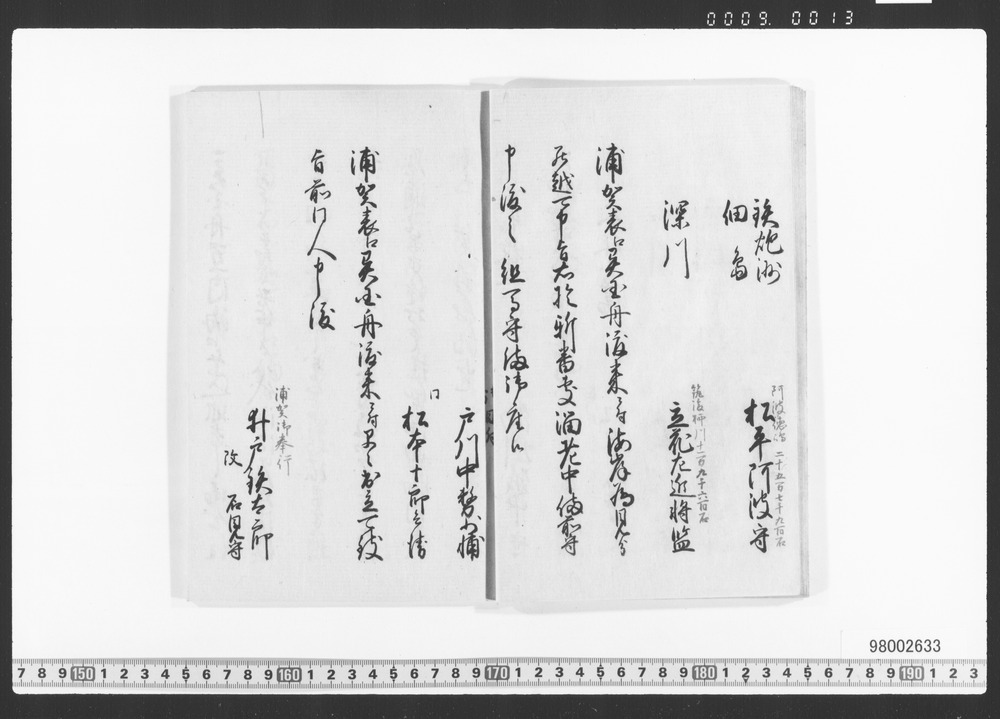 0009. 0013
鉄炮洲
佃島
阿波徳島 二十五万七千九百石
松平阿波守
深川
筑後柳川 十一万九千六百石
立花左近将監
浦賀表江異国舟渡来ニ付海岸為見分
罷越可申旨於新番所溜老中備前守
申渡之 組
戸川中務少輔
同
松本十郎兵衛
浦賀表江異国舟渡来ニ付早々出立可致
旨前同人申渡
浦賀御奉行
井戸鉄太郎
改 石見守
98002633
7 8 9 150 1 2 3 4 5 6 7 8 9 160 1 2 3 4 5 6 7 8 9 170 1 2 3 4 5 6 7 8 9 180 1 2 3 4 5 6 7 8 9 190 1 2 3